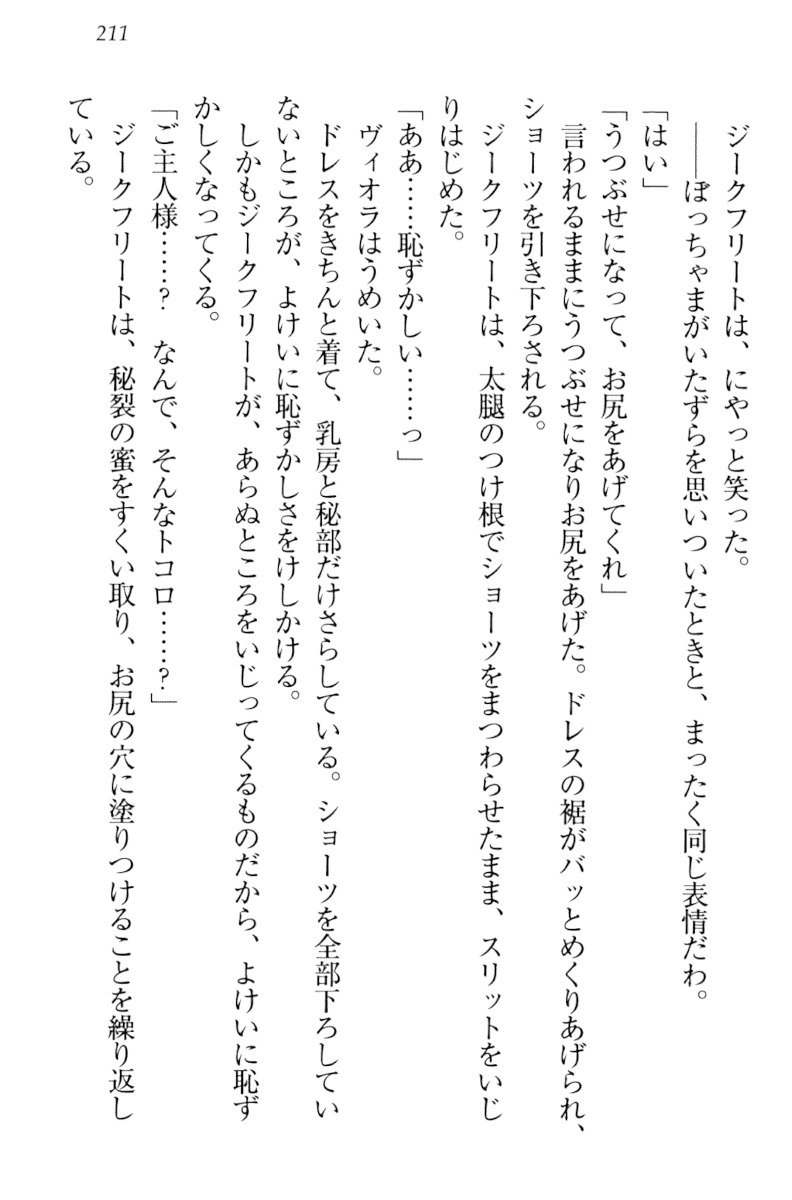 211
ジークフリートは、にやっと笑った。
――ぼっちゃまがいたずらを思いついたときと、まったく同じ表情だわ。
「はい」
「うつぶせになって、お尻をあげてくれ」
言われるままにうつぶせになりお尻をあげた。ドレスの裾がバッとめくりあげられ、
ショーツを引き下ろされる。
ジークフリートは、太腿のつけ根でショーツをまつわらせたまま、スリットをいじ
りはじめた。
「ああ……恥ずかしい……っ」
ヴィオラはうめいた。
ドレスをきちんと着て、乳房と秘部だけさらしている。ショーツを全部下ろしてい
ないところが、よけいに恥ずかしさをけしかける。
しかもジークフリートが、あらぬところをいじってくるものだから、よけいに恥ず
かしくなってくる。
「ご主人様……？　なんで、そんなトコロ……？」
ジークフリートは、秘裂の蜜をすくい取り、お尻の穴に塗りつけることを繰り返し
ている。